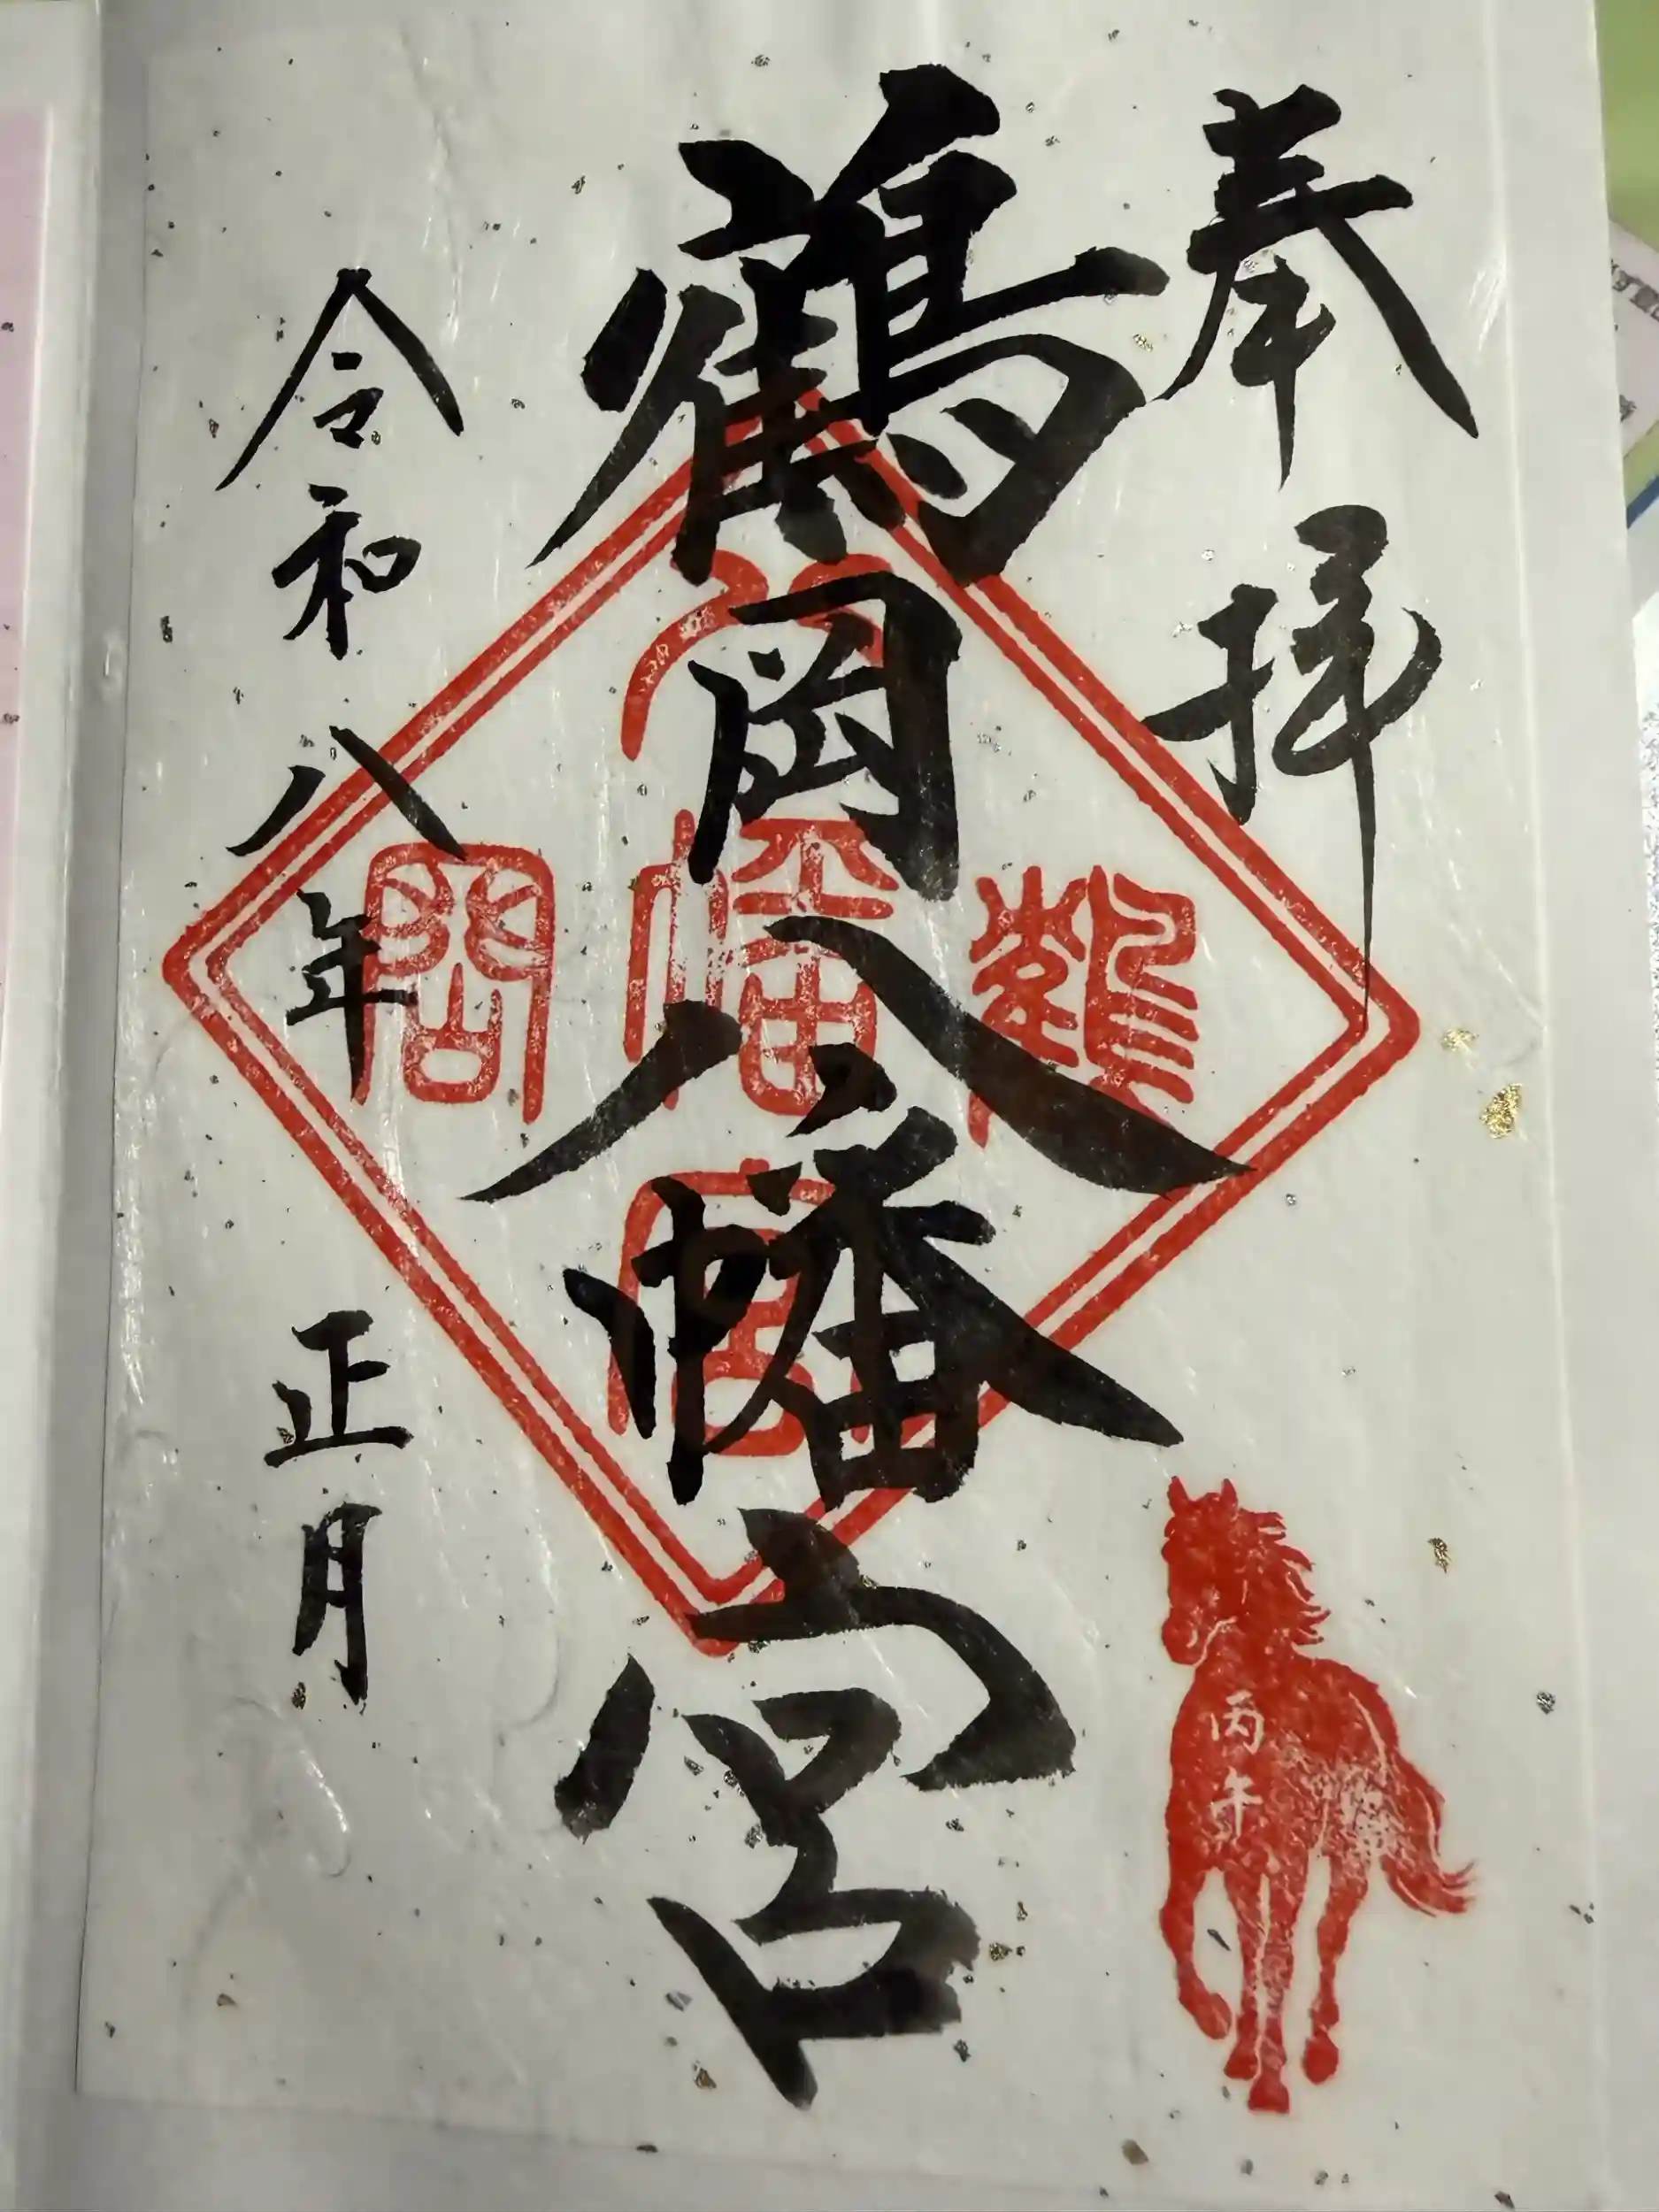 奉拝
鶴岡八幡宮
令和八年 正月
鶴
岡
八
幡
宮
丙午